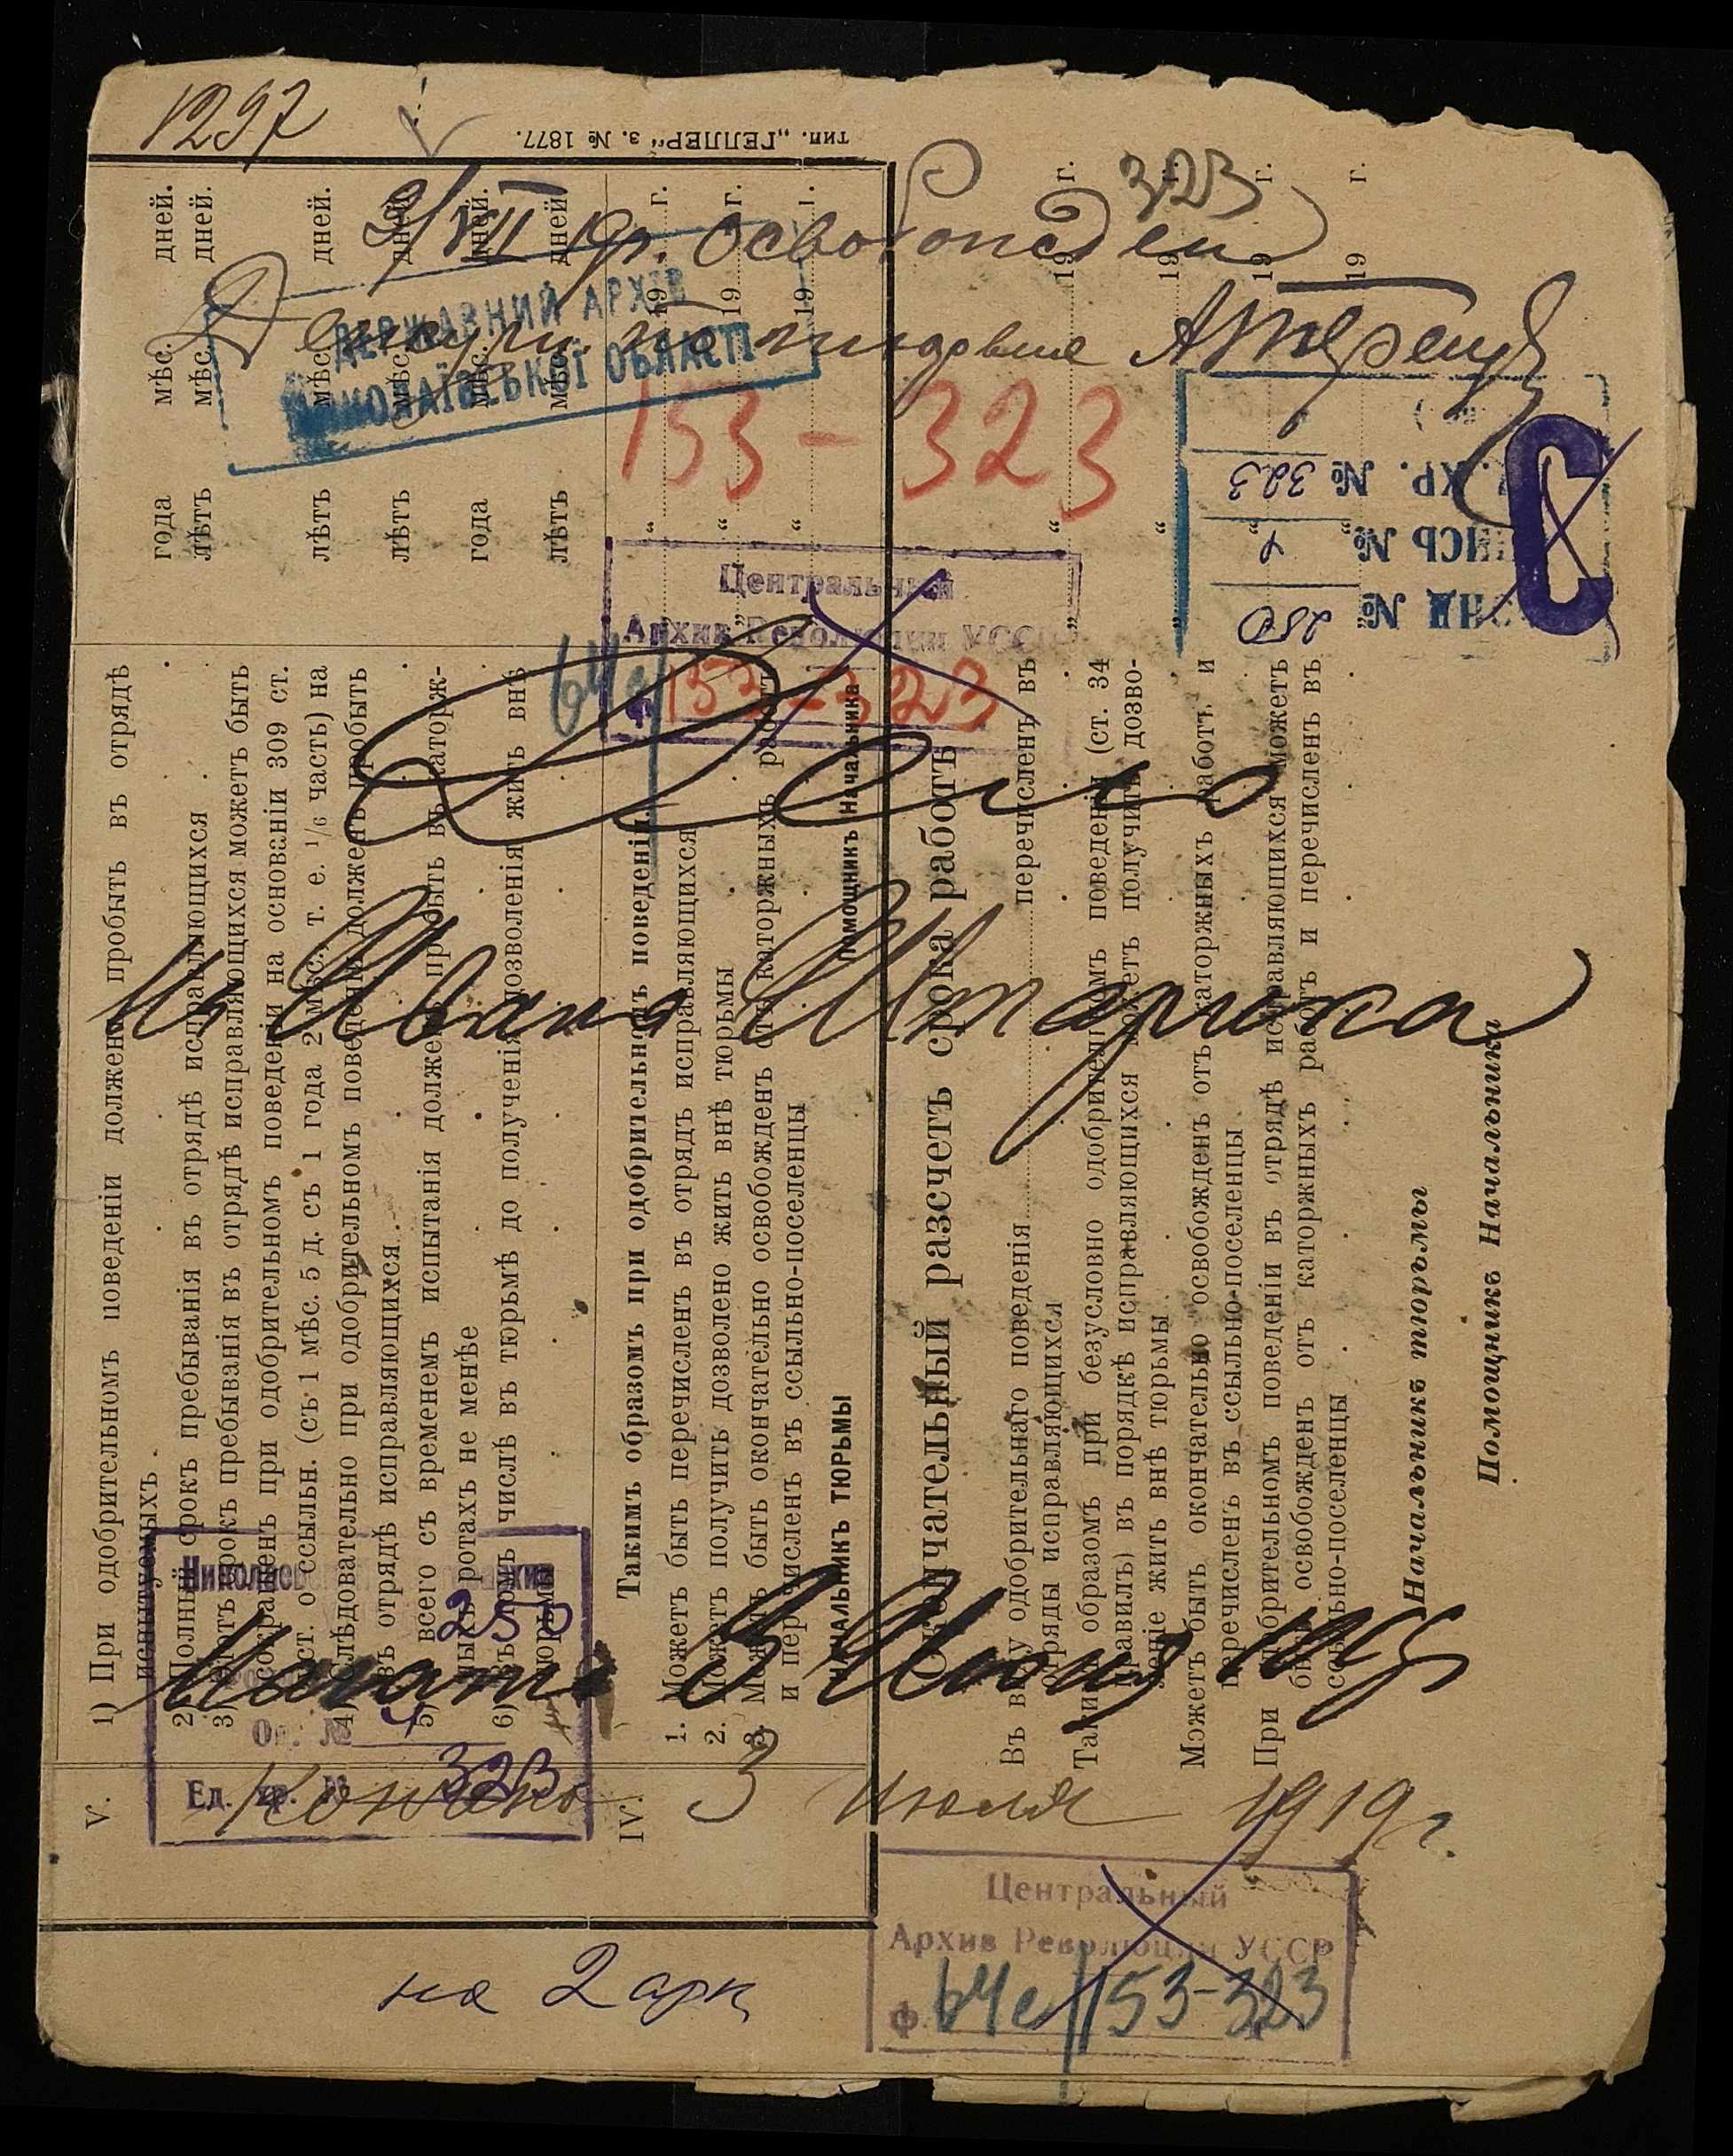 1297
323
3/VII 19 г. Освобожден
ДЕРЖАВНИЙ АРХІВ
МИКОЛАЇВСЬКОЇ ОБЛАСТІ
153-323
Центральный
Архив Революции УССР
64с/153-323
Дело
Ивана
Начато 3 Июля 19
Кончено 3 июля 1919 г.
250
Оп. № 4
Ед. хр. № 323
Центральный
Архив Революции УССР
ф. 64с/153-323
на 2 арк
тип. „ГЕЛЛЕР“ з. № 1877.
ФОНД № 250
ОПИСЬ №
ХР. № 323
С
V.
1) При одобрительномъ поведеніи долженъ пробыть въ отрядѣ
испытуемыхъ
2) Полный срокъ пребыванія въ отрядѣ исправляющихся
3) Этотъ срокъ пребыванія въ отрядѣ исправляющихся можетъ быть
сокращенъ при одобрительномъ поведеніи на основаніи 309 ст.
уст. о ссыльн. (съ 1 мѣс. 5 д. съ 1 года 2 мѣс. т. е. 1/6 часть) на
4) Слѣдовательно при одобрительномъ поведеніи долженъ пробыть
въ отрядѣ исправляющихся
5) всего съ временемъ испытанія долженъ пробыть въ каторж-
ныхъ ротахъ не менѣе
6) въ томъ числѣ въ тюрьмѣ до полученія дозволенія жить внѣ
тюрьмы
года мѣс. дней.
лѣтъ мѣс. дней.
лѣтъ мѣс. дней.
лѣтъ мѣс. дней.
года мѣс. дней.
лѣтъ мѣс. дней.
IV.
Такимъ образомъ при одобрительномъ поведеніи
1. Можетъ быть перечисленъ въ отрядъ исправляющихся
2. Можетъ получить дозволено жить внѣ тюрьмы
3. Можетъ быть окончательно освобожденъ отъ каторжныхъ работъ
и перечисленъ въ ссыльно-поселенцы
19 г.
19 г.
19 г.
НАЧАЛЬНИКЪ ТЮРЬМЫ
ПОМОЩНИКЪ НАЧАЛЬНИКА
Окончательный разсчетъ срока работъ
Въ виду одобрительнаго поведенія перечисленъ въ
отряды исправляющихся 19 г.
Такимъ образомъ при безусловно одобрительномъ поведеніи (ст. 34
правилъ) въ порядкѣ исправляющихся можетъ получить дозво-
леніе жить внѣ тюрьмы 19 г.
Можетъ быть окончательно освобожденъ отъ каторжныхъ работъ и
перечисленъ въ ссыльно-поселенцы 19 г.
При одобрительномъ поведеніи въ отрядѣ исправляющихся можетъ
быть освобожденъ отъ каторжныхъ работъ и перечисленъ въ
ссыльно-поселенцы 19 г.
Начальникъ тюрьмы
Помощникъ Начальника